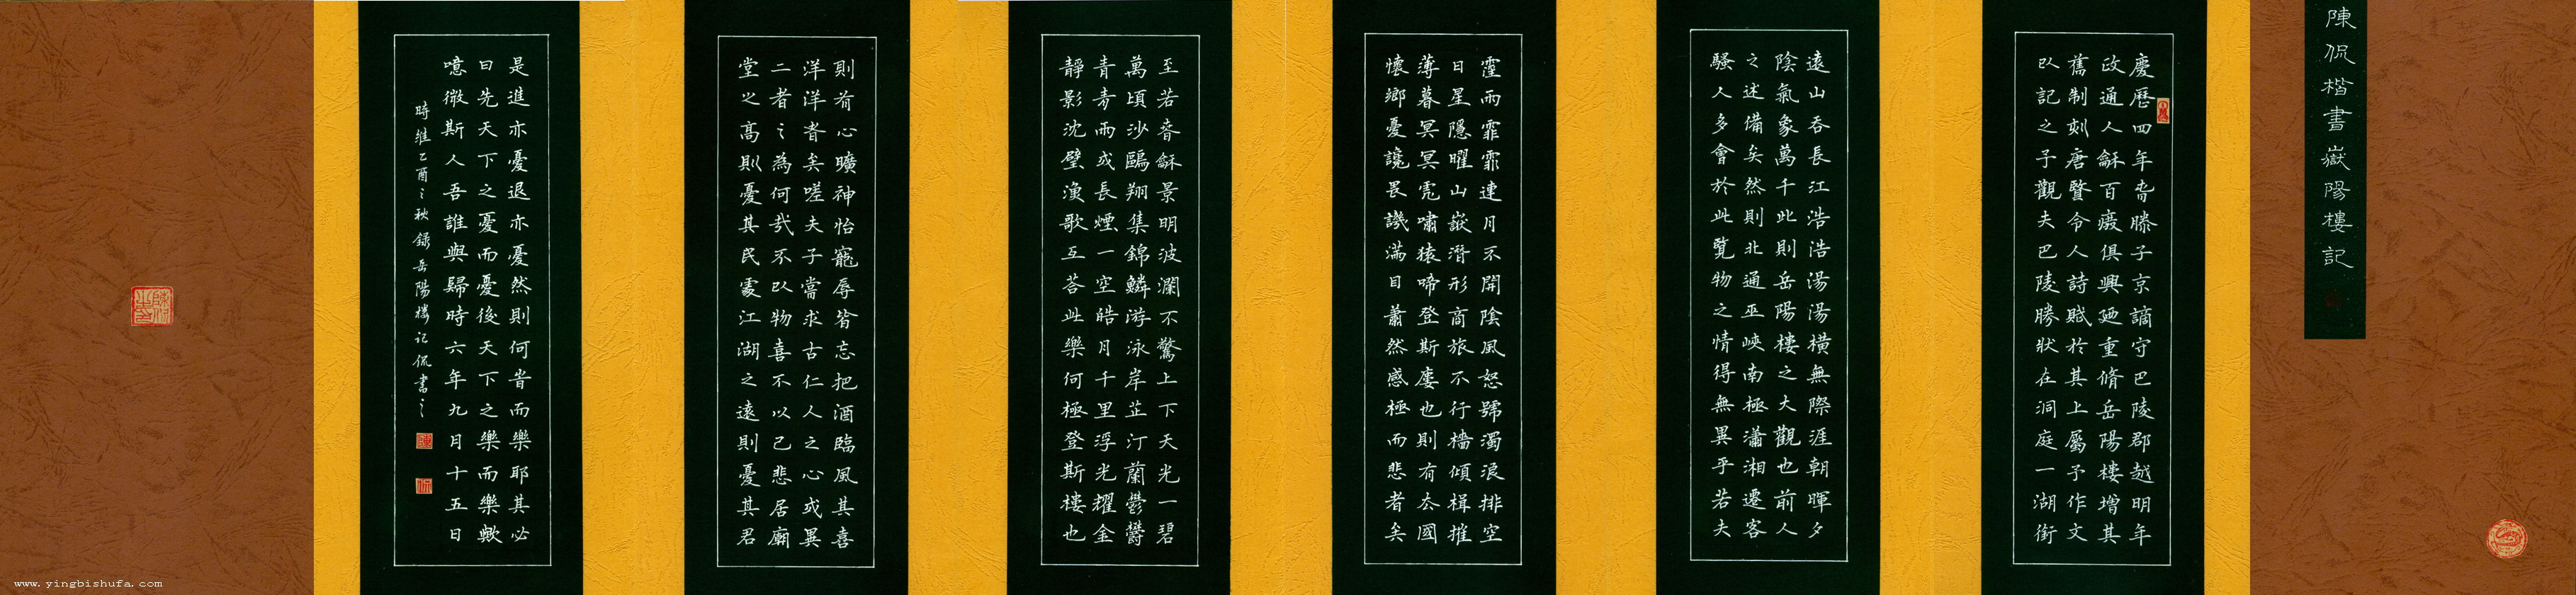 陳侃楷書嶽陽樓記
慶曆四年春滕子京謫守巴陵郡越明年
政通人龢百廢俱興廼重脩岳陽樓增其
舊制刻唐賢今人詩賦於其上屬予作文
以記之予觀夫巴陵勝狀在洞庭一湖銜
遠山吞長江浩浩湯湯橫無際涯朝暉夕
陰氣象萬千此則岳陽樓之大觀也前人
之述備矣然則北通巫峽南極瀟湘遷客
騷人多會於此覽物之情得無異乎若夫
霪雨霏霏連月不開陰風怒號濁浪排空
日星隱曜山嶽潛形商旅不行檣傾楫摧
薄暮冥冥虎嘯猿啼登斯樓也則有去國
懷鄉憂讒畏譏滿目蕭然感極而悲者矣
至若春龢景明波瀾不驚上下天光一碧
萬頃沙鷗翔集錦鱗游泳岸芷汀蘭鬱鬱
青青而或長煙一空皓月千里浮光耀金
靜影沈璧漁歌互荅此樂何極登斯樓也
則有心曠神怡寵辱皆忘把酒臨風其喜
洋洋者矣嗟夫予嘗求古仁人之心或異
二者之為何哉不以物喜不以己悲居廟
堂之高則憂其民處江湖之遠則憂其君
是進亦憂退亦憂然則何時而樂耶其必
曰先天下之憂而憂後天下之樂而樂歟
噫微斯人吾誰與歸時六年九月十五日
時維乙酉之秋錄岳陽樓記侃書之
陳
侃
www.yingbishufa.com